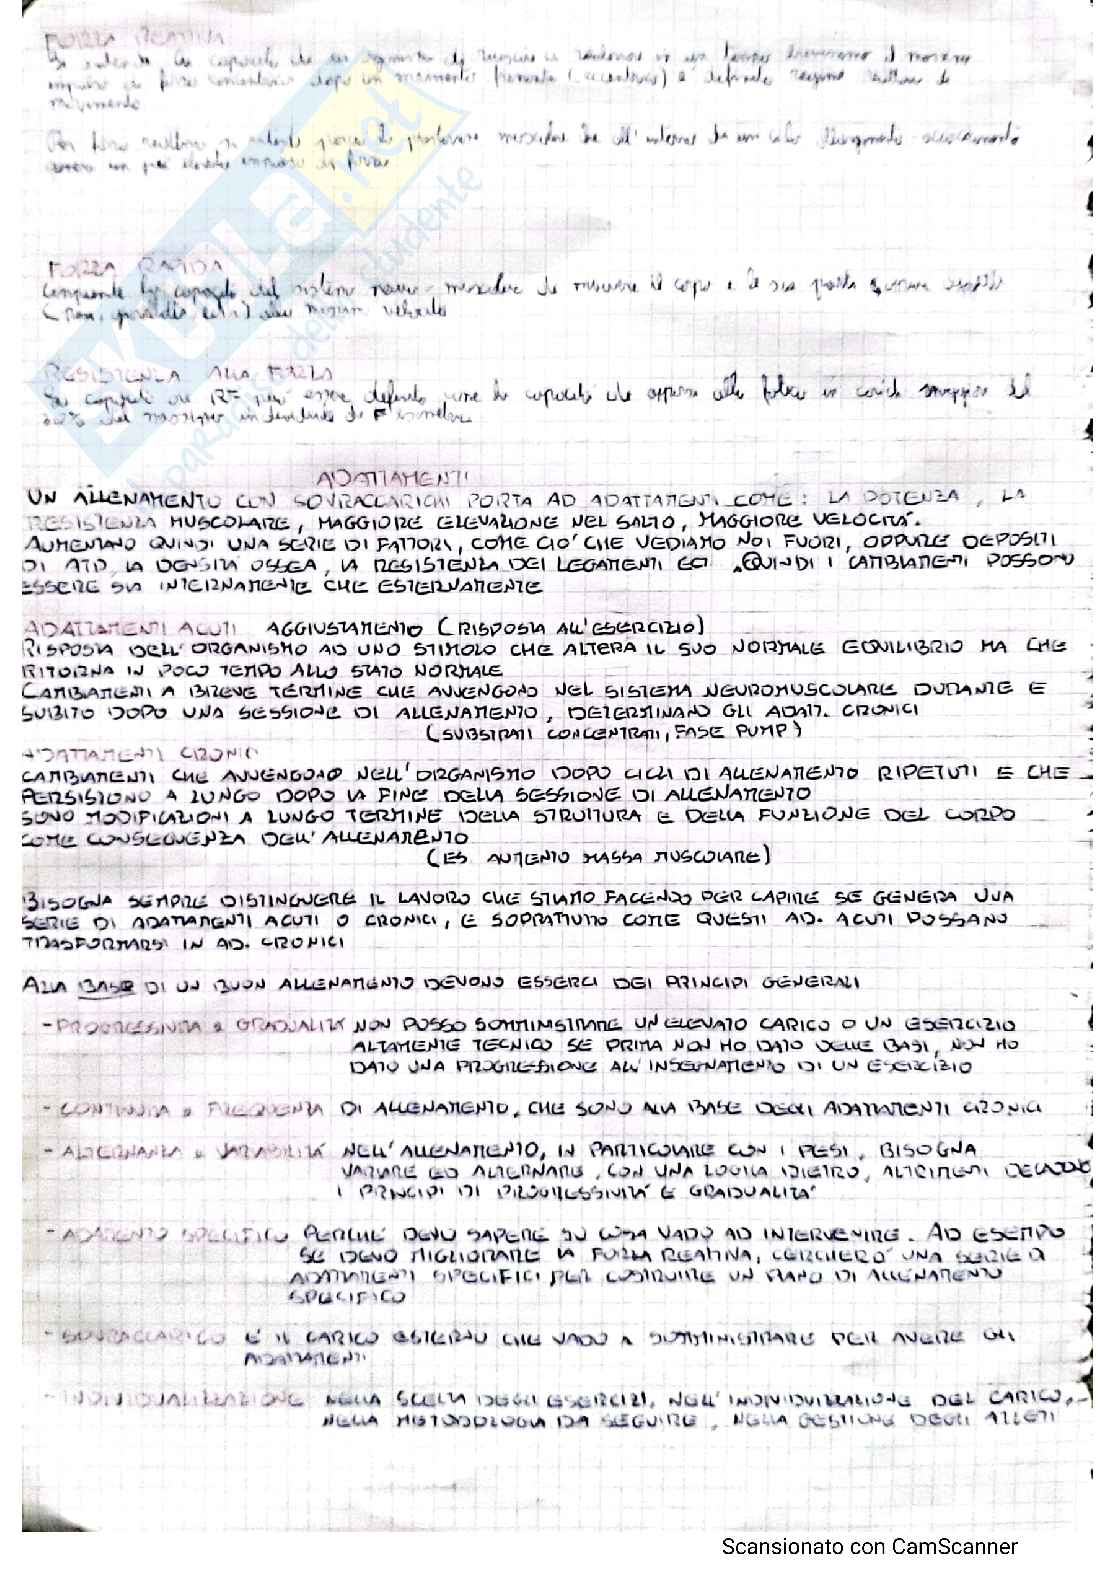 FORZA REATTIVA
Si intende la capacità che
impulso di forza concentrica dopo un movimento frenato (eccentrico) e definito regime reattivo di
movimento
Per forza reattiva si intende quindi la prestazione muscolare che all'interno di un ciclo allungamento accorciamento
un più elevato impulso di forza
FORZA RAPIDA
la capacità del sistema neuro-muscolare di muovere il corpo e le sue parti
alla massima velocità
RESISTENZA ALLA FORZA
La capacità di RF può essere definita come la capacità di opporsi alla fatica in carichi maggiori del
30% del massimo individuale di F isometrica
ADATTAMENTI
UN ALLENAMENTO CON SOVRACCARICHI PORTA AD ADATTAMENTI COME: LA POTENZA, LA
RESISTENZA MUSCOLARE, MAGGIORE ELEVAZIONE NEL SALTO, MAGGIORE VELOCITÀ.
AUMENTANO QUINDI UNA SERIE DI FATTORI, COME CIO' CHE VEDIAMO NOI FUORI, OPPURE DEPOSITI
DI ATP, LA DENSITÀ OSSEA, LA RESISTENZA DEI LEGAMENTI ECC. QUINDI I CAMBIAMENTI POSSONO
ESSERE SIA INTERNAMENTE CHE ESTERNAMENTE
ADATTAMENTI ACUTI AGGIUSTAMENTO (RISPOSTA ALL'ESERCIZIO)
RISPOSTA DELL'ORGANISMO AD UNO STIMOLO CHE ALTERA IL SUO NORMALE EQUILIBRIO MA CHE
RITORNA IN POCO TEMPO ALLO STATO NORMALE
CAMBIAMENTI A BREVE TERMINE CHE AVVENGONO NEL SISTEMA NEUROMUSCOLARE DURANTE E
SUBITO DOPO UNA SESSIONE DI ALLENAMENTO, DETERMINANO GLI ADATT. CRONICI
(SUBSTRATI CONCENTRATI, FASE PUMP)
ADATTAMENTI CRONICI
CAMBIAMENTI CHE AVVENGONO NELL'ORGANISMO DOPO CICLI DI ALLENAMENTO RIPETUTI E CHE
PERSISTONO A LUNGO DOPO LA FINE DELLA SESSIONE DI ALLENAMENTO
SONO MODIFICAZIONI A LUNGO TERMINE DELLA STRUTTURA E DELLA FUNZIONE DEL CORPO
COME CONSEGUENZA DELL'ALLENAMENTO
(ES AUMENTO MASSA MUSCOLARE)
BISOGNA SEMPRE DISTINGUERE IL LAVORO CHE STIAMO FACENDO PER CAPIRE SE GENERA UNA
SERIE DI ADATTAMENTI ACUTI O CRONICI, E SOPRATTUTTO COME QUESTI AD. ACUTI POSSANO
TRASFORMARSI IN AD. CRONICI
ALLA BASE DI UN BUON ALLENAMENTO DEVONO ESSERCI DEI PRINCIPI GENERALI
- PROGRESSIVITÀ e GRADUALITÀ NON POSSO SOMMINISTRARE UN ELEVATO CARICO O UN ESERCIZIO
ALTAMENTE TECNICO SE PRIMA NON HO DATO DELLE BASI, NON HO
DATO UNA PROGRESSIONE ALL'INSEGNAMENTO DI UN ESERCIZIO
- CONTINUITÀ e FREQUENZA DI ALLENAMENTO, CHE SONO ALLA BASE DEGLI ADATTAMENTI CRONICI
- ALTERNANZA e VARIABILITÀ NELL'ALLENAMENTO, IN PARTICOLARE CON I PESI, BISOGNA
VARIARE ED ALTERNARE, CON UNA LOGICA DIETRO, ALTRIMENTI DECADONO
I PRINCIPI DI PROGRESSIVITA' E GRADUALITA'
- SPECIFICO PERCHE' DEVO SAPERE SU COSA VADO AD INTERVENIRE. AD ESEMPIO
SE DEVO MIGLIORARE LA FORZA REATTIVA, CERCHERO' UNA SERIE DI
ADATTAMENTI SPECIFICI PER COSTRUIRE UN PIANO DI ALLENAMENTO
SPECIFICO
- SOVRACCARICO E' IL CARICO ESTERNO CHE VADO A SOMMINISTRARE PER AVERE GLI
ADATTAMENTI
- INDIVIDUALIZZAZIONE NELLA SCELTA DEGLI ESERCIZI, NELL'INDIVIDUAZIONE DEL CARICO,
NELLA METODOLOGIA DA SEGUIRE, NELLA GESTIONE DEGLI ATLETI
Scansionato con CamScanner